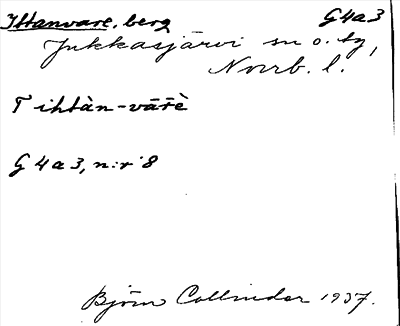 Ittanvare, berg G4a3
Jukkasjärvi sn o. tg,
Norrb. l.
T ihtàn-vāřè
G 4a3, n:r 8
Björn Collinder 1937.